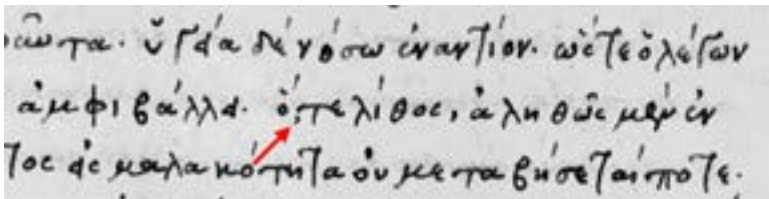 ὑγεία δὲ νόσω ἐναντίον. ὥστε ὁ λέγων
ἀμφιβάλλει. ὅ,τε λίθος, ἀληθῶς μὲν ἐν
τος εἰς μαλακότητα οὐ μεταβήσεταί ποτε.